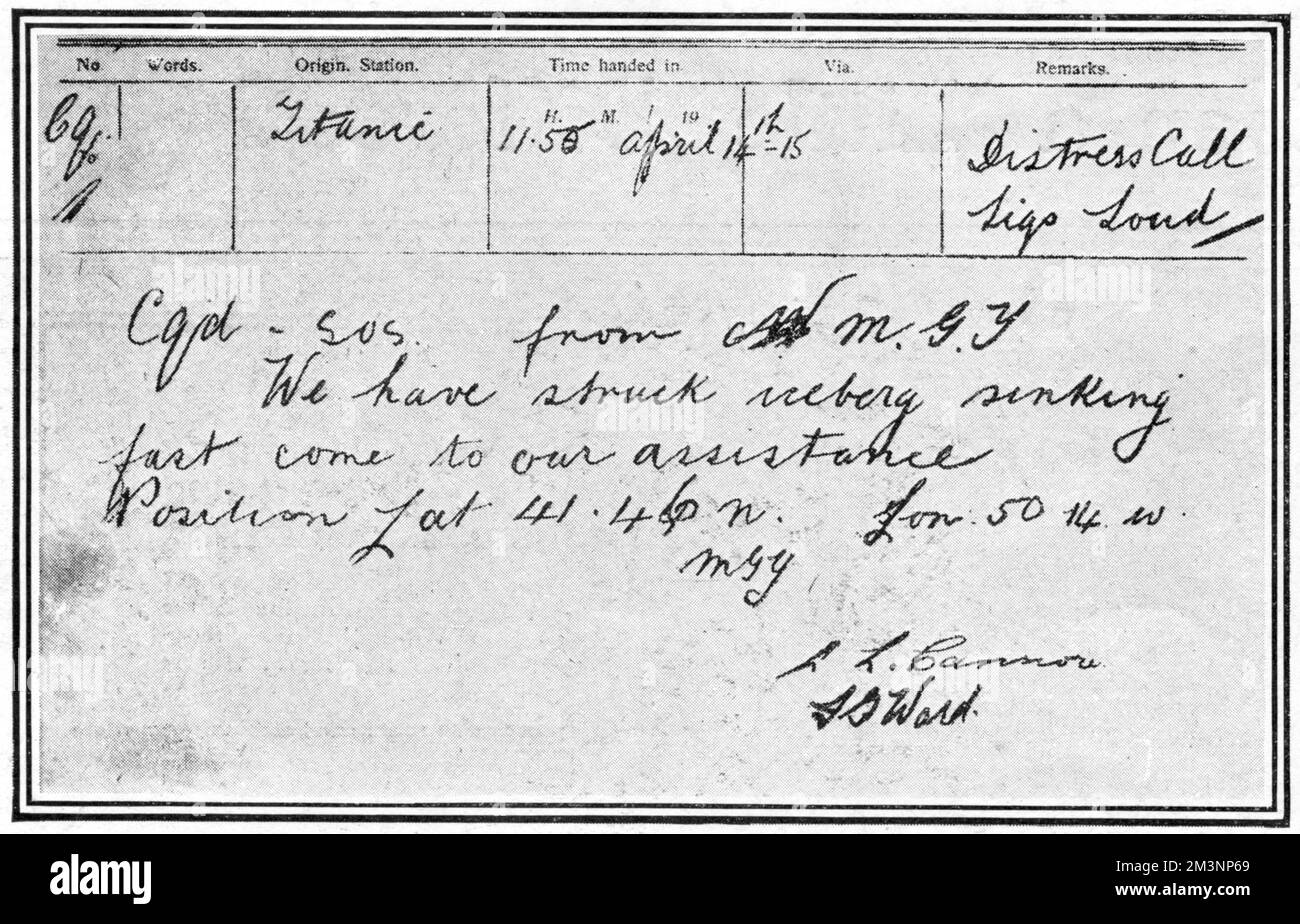 No. Words. Origin. Station. Time handed in. Via. Remarks.
H. M. / 19
Titanic 11.55 april 14th-15 Distress Call
Sigs Loud
Cqd - SOS. from M.G.Y
We have struck iceberg sinking
fast come to our assistance
Position Lat 41.46 n. Lon. 50 14. w.
MGY
Ward.
alamy
Image ID: 2M3NP69
www.alamy.com